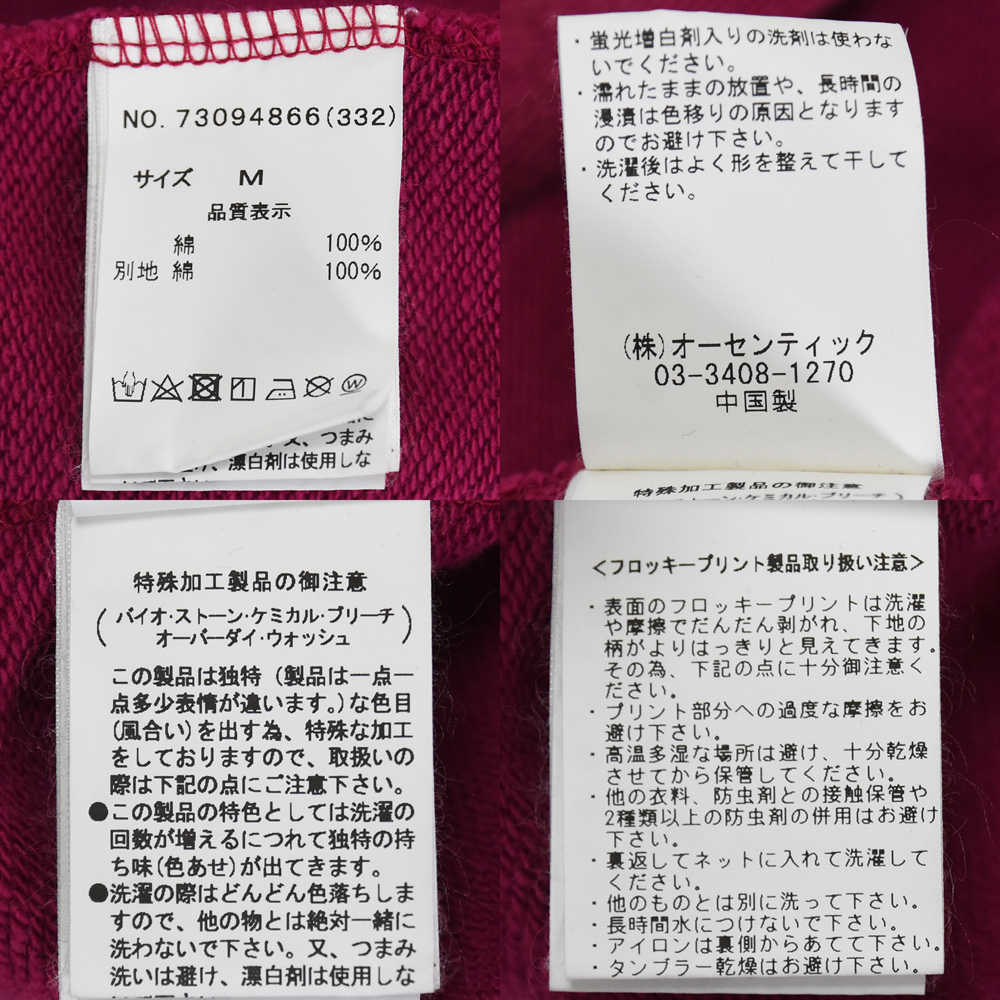 NO. 73094866(332)
サイズ M
品質表示
綿 100%
別地 綿 100%
又、つまみ
け、漂白剤は使用しな
・蛍光増白剤入りの洗剤は使わな
いでください。
・濡れたままの放置や、長時間の
浸漬は色移りの原因となります
のでお避け下さい。
・洗濯後はよく形を整えて干して
ください。
(株)オーセンティック
03-3408-1270
中国製
特殊加工製品の御注意
ストーン・ケミカル・ブリーチ
特殊加工製品の御注意
(バイオ・ストーン・ケミカル・ブリーチ
オーバーダイ・ウォッシュ)
この製品は独特(製品は一点一
点多少表情が違います。)な色目
(風合い)を出す為、特殊な加工
をしておりますので、取扱いの
際は下記の点にご注意下さい。
●この製品の特色としては洗濯の
回数が増えるにつれて独特の持
ち味(色あせ)が出てきます。
●洗濯の際はどんどん色落ちしま
すので、他の物とは絶対一緒に
洗わないで下さい。又、つまみ
洗いは避け、漂白剤は使用しな
<フロッキープリント製品取り扱い注意>
・表面のフロッキープリントは洗濯
や摩擦でだんだん剥がれ、下地の
柄がよりはっきりと見えてきます。
その為、下記の点に十分御注意く
ださい。
・プリント部分への過度な摩擦をお
避け下さい。
・高温多湿な場所は避け、十分乾燥
させてから保管してください。
・他の衣料、防虫剤との接触保管や
2種類以上の防虫剤の併用はお避け
下さい。
・裏返してネットに入れて洗濯して
ください。
・他のものとは別に洗って下さい。
・長時間水につけないで下さい。
・アイロンは裏側からあてて下さい。
・タンブラー乾燥はお避け下さい。